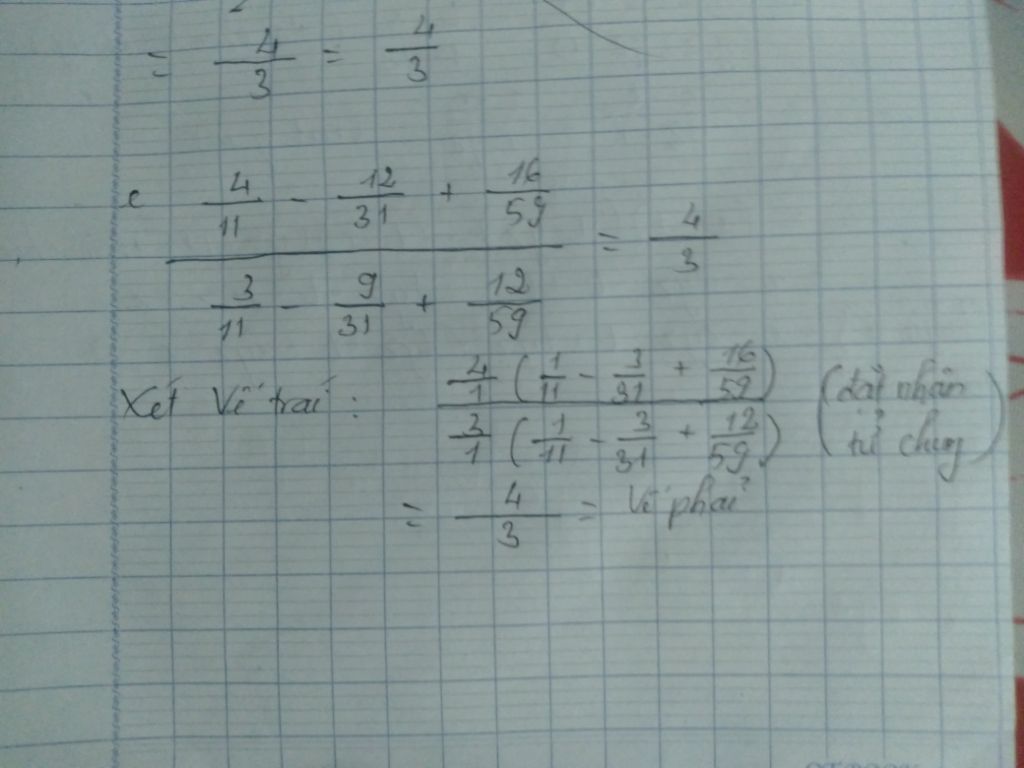 = 4/3 = 4/3
c 4/11 - 12/31 + 16/59
= 4/3
3/11 - 9/31 + 12/59
Xét Vế trái : 4/1 (1/11 - 3/31 + 16/59)
3/1 (1/11 - 3/31 + 12/59)
(đặt nhân
tử chung)
= 4/3 = Vế phải